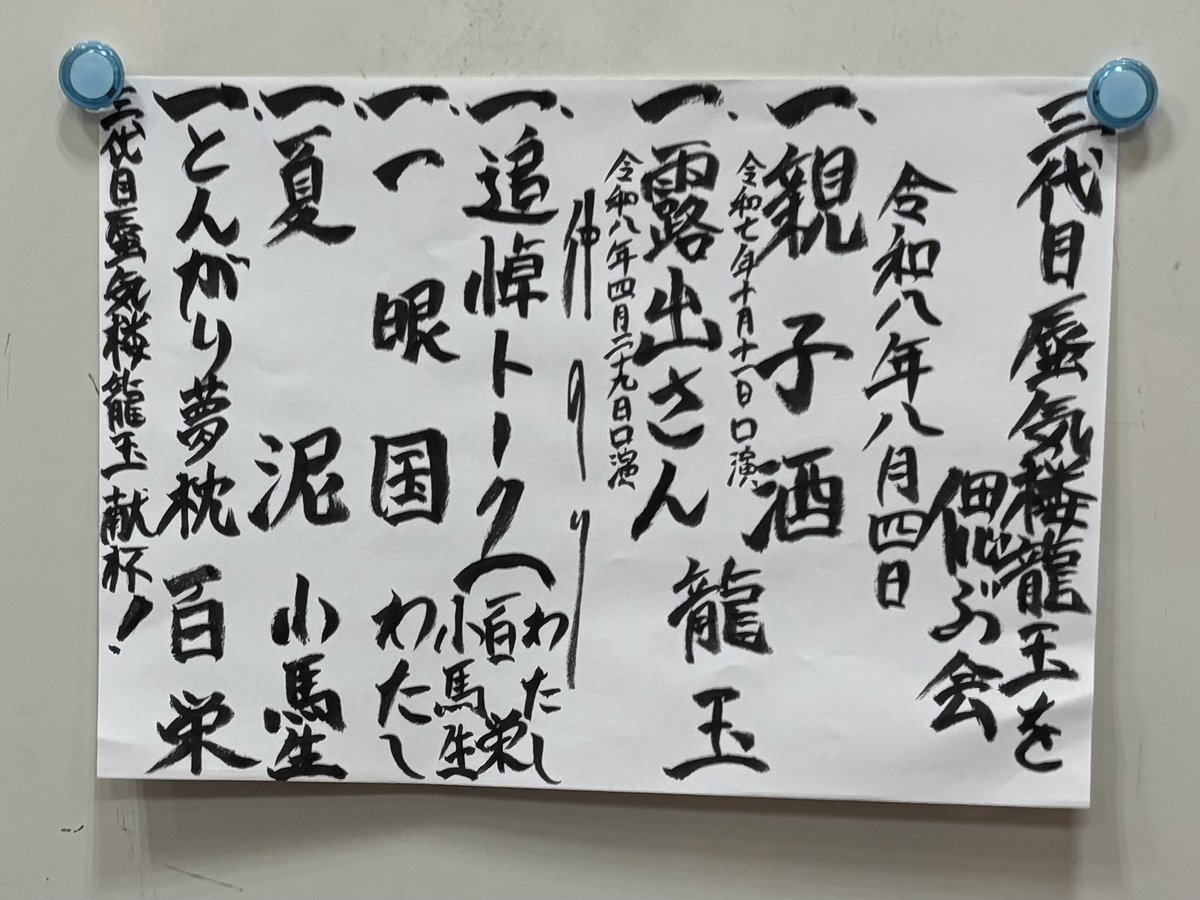 三代目蜃気楼龍玉を
偲ぶ会
令和八年八月四日
一、親子酒
令和七年十月十一日口演
龍玉
一、露出さん
令和八年四月二十九日口演
仲入り
一、追悼トーク(わたし
百栄
小馬生
一、一眼国 わたし
一、夏泥 小馬生
一、とんがり夢枕 百栄
三代目蜃気楼龍玉献杯!